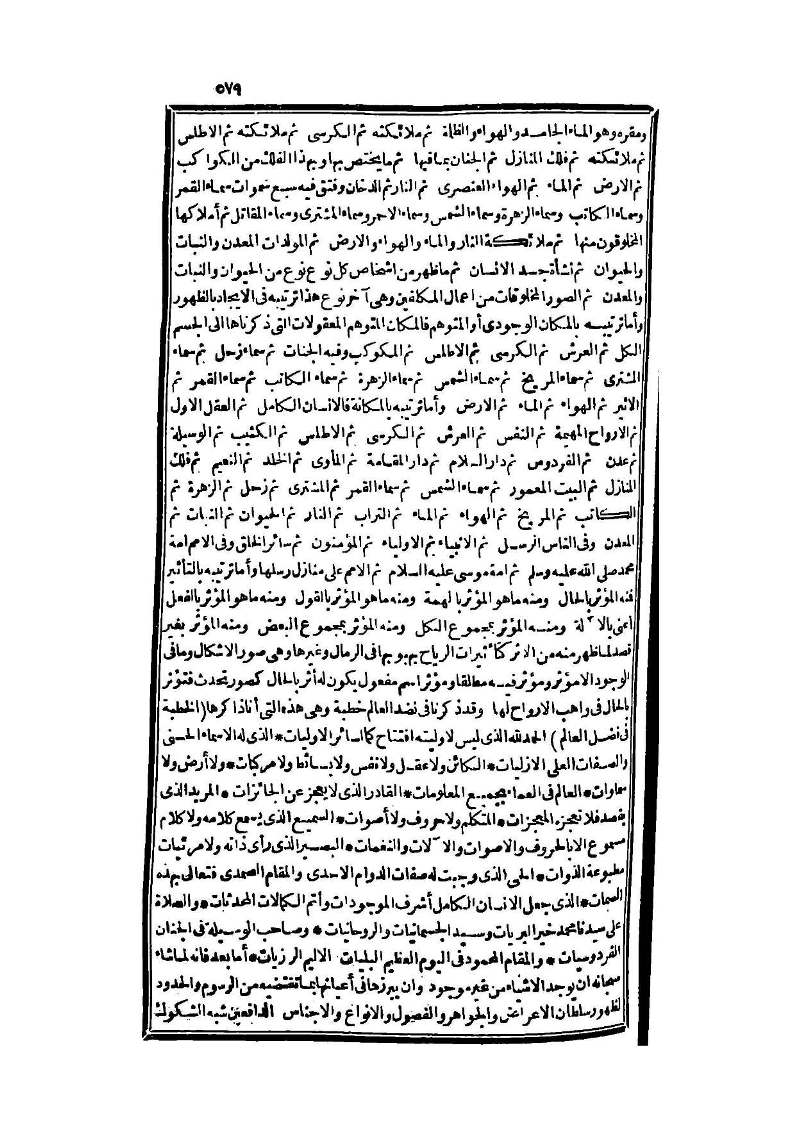 ٥٧٩
ومقره وهو الماء الجامد والهواء والظلمة ثم ملائكته ثم الكرسى ثم ملائكته ثم الاطلس
ثم ملائكته ثم فلك المنازل ثم الجنان بما فيها ثم ما يختص بها وبهذا الفلك من الكواكب
ثم الارض ثم الماء ثم الهواء العنصرى ثم النار ثم الدخان وفتق فيه سبع سموات سماء القمر
وسماء الكاتب وسماء الزهرة وسماء الشمس وسماء الاحمر وسماء المشترى وسماء المقاتل ثم أملاكها
المخلوقون منها ثم ملائكة النار والماء والهواء والارض ثم المولدات المعدن والنبات
والحيوان ثم نشأة جسد الانسان ثم ما ظهر من اشخاص كل نوع نوع من الحيوان والنبات
والمعدن ثم الصور المخلوقات من اعمال المكلفين وهى آخر نوع هذا ترتيبه فى الايجاد بالظهور
وأما ترتيبه بالمكان الوجودى أو المتوهم فالمكان المتوهم المعقولات التى ذكرناها الى الجسم
الكل ثم العرش ثم الكرسى ثم الاطلس ثم المكوكب وفيه الجنات ثم سماء زحل ثم سماء
المشترى ثم سماء المريخ ثم سماء الشمس ثم سماء الزهرة ثم سماء الكاتب ثم سماء القمر ثم
الاثير ثم الهواء ثم الماء ثم الارض وأما ترتيبه بالمكانة فالانسان الكامل ثم العقل الاول
ثم الارواح المهيمة ثم النفس ثم العرش ثم الكرسى ثم الاطلس ثم الكثيب ثم الوسيلة
ثم عدن ثم الفردوس ثم دار السلام ثم دار المقامة ثم المأوى ثم الخلد ثم النعيم ثم فلك
المنازل ثم البيت المعمور ثم سماء الشمس ثم سماء القمر ثم المشترى ثم زحل ثم الزهرة ثم
الكاتب ثم المريخ ثم الهواء ثم الماء ثم التراب ثم النار ثم الحيوان ثم النبات ثم
المعدن وفى الناس الرسل ثم الانبياء ثم الاولياء ثم المؤمنون ثم سائر الخلق وفى الامم امة
محمد صلى الله عليه وسلم ثم امة موسى عليه السلام ثم الامم على منازل رسلها وأما ترتيبه بالتأثير
فنه المؤثر بالحال ومنه ما هو المؤثر بالهمة ومنه ما هو المؤثر بالقول ومنه ما هو المؤثر بالفعل
اعنى بالآلة ومنه المؤثر بمجموع الكل ومنه المؤثر بمجموع البعض ومنه المؤثر بغير
قصد لما ظهر منه من الاثر كتأثيرات الرياح بهبوبها فى الرمال وغيرها وهى صور الاشكال وما فى
الوجود الا مؤثر ومؤثر فيه مطلقا ومؤثر اسم مفعول يكون له أثر بالحال كصور تحدث فتؤثر
بالحال فى واهب الارواح لها وقد ذكرنا فى نضد العالم خطبة وهى هذه التى أنا ذاكرها (الخطبة
فى نضد العالم) الحمد لله الذى ليس لاوليته افتتاح كما لسائر الاوليات * الذى له الاسماء الحسنى
والصفات العلى الازليات * الكائن ولا عقل ولا نفس ولا بسائط ولا مركبات * ولا أرض ولا
سماوات * العالم فى العماء بجميع المعلومات * القادر الذى لا يعجز عن الجائزات * المريد الذى
يقصد فلا تعجزه المعجزات * المتكلم ولا حروف ولا أصوات * السميع الذى يسمع كلامه ولا كلام
مسموع الا بالحروف والاصوات والآلات والنغمات * البصير الذى رأى ذاته ولا مرئيات
مطبوعة الذوات * الحى الذى وجبت له صفات الدوام الاحدى والمقام الصمدى فتعالى بهذه
السمات * الذى جعل الانسان الكامل أشرف الموجودات وأتم الكمالات المحدثات * والصلاة
على سيدنا محمد خير البريات وسيد الجسمانيات والروحانيات * وصاحب الوسيلة فى الجنان
الفردوسيات * والمقام المحمود فى اليوم العظيم البليات الاليم الرزيات * أما بعد فانه لما شاء
سبحانه ان يوجد الاشياء من غير موجود وان يبرزها فى أعيانها بما تقتضيه من الرسوم والحدود
لظهور سلطان الاعراض والجواهر والفصول والانواع والاجناس الدافعين شبه الشكوك